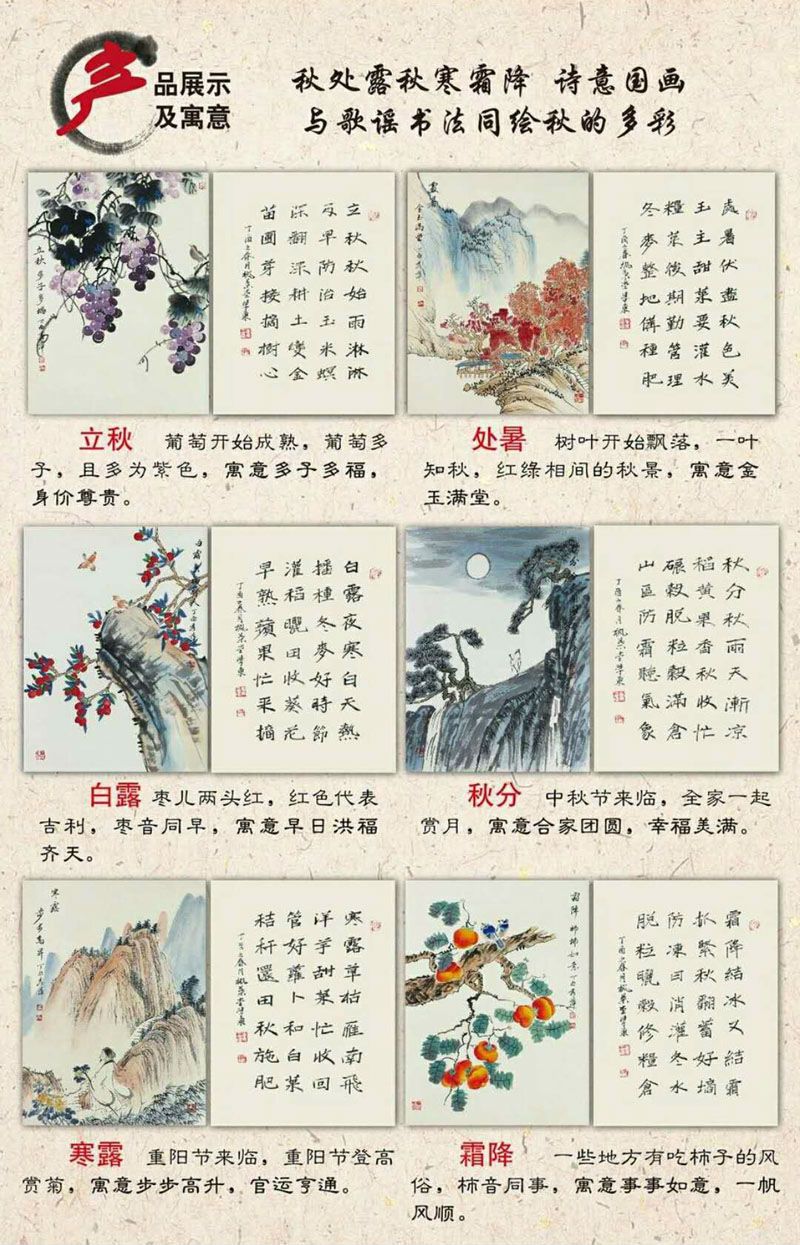 产品展示
及寓意
秋处露秋寒霜降 诗意国画
与歌谣书法同绘秋的多彩
立秋多子多福
立秋秋始雨淋淋
及早防治玉米螟
深翻深耕土變金
苗圃芽接摘樹心
丁酉之春月
處暑
處暑伏盡秋色美
玉主甜菜要灌水
糧菜後期勤管理
冬麥整地備種肥
丁酉之春
立秋 葡萄开始成熟，葡萄多
子，且多为紫色，寓意多子多福，
身价尊贵。
处暑 树叶开始飘落，一叶
知秋，红绦相间的秋景，寓意金
玉满堂。
白露
白露夜寒白天熱
播種冬麥好時節
灌稻曬田收葵花
早熟蘋果忙采摘
丁酉之春月
秋分
秋分秋雨天漸凉
稻黄果香秋收忙
碾穀脱粒穀滿倉
山區防霜聽氣象
丁酉之春月
白露 枣儿两头红，红色代表
吉利，枣音同早，寓意早日洪福
齐天。
秋分 中秋节来临，全家一起
赏月，寓意合家团圆，幸福美满。
寒露
步步高昇
寒露草枯雁南飛
洋芋甜菜忙收回
管好蘿卜和白菜
秸秆還田秋施肥
丁酉之春月
霜降 柿柿如意
霜降結冰又結霜
抓緊秋翻蓄好墒
防凍日消灌冬水
脱粒曬穀修糧倉
丁酉之春月
寒露 重阳节来临，重阳节登高
赏菊，寓意步步高升，官运亨通。
霜降 一些地方有吃柿子的风
俗，柿音同事，寓意事事如意，一帆
风顺。